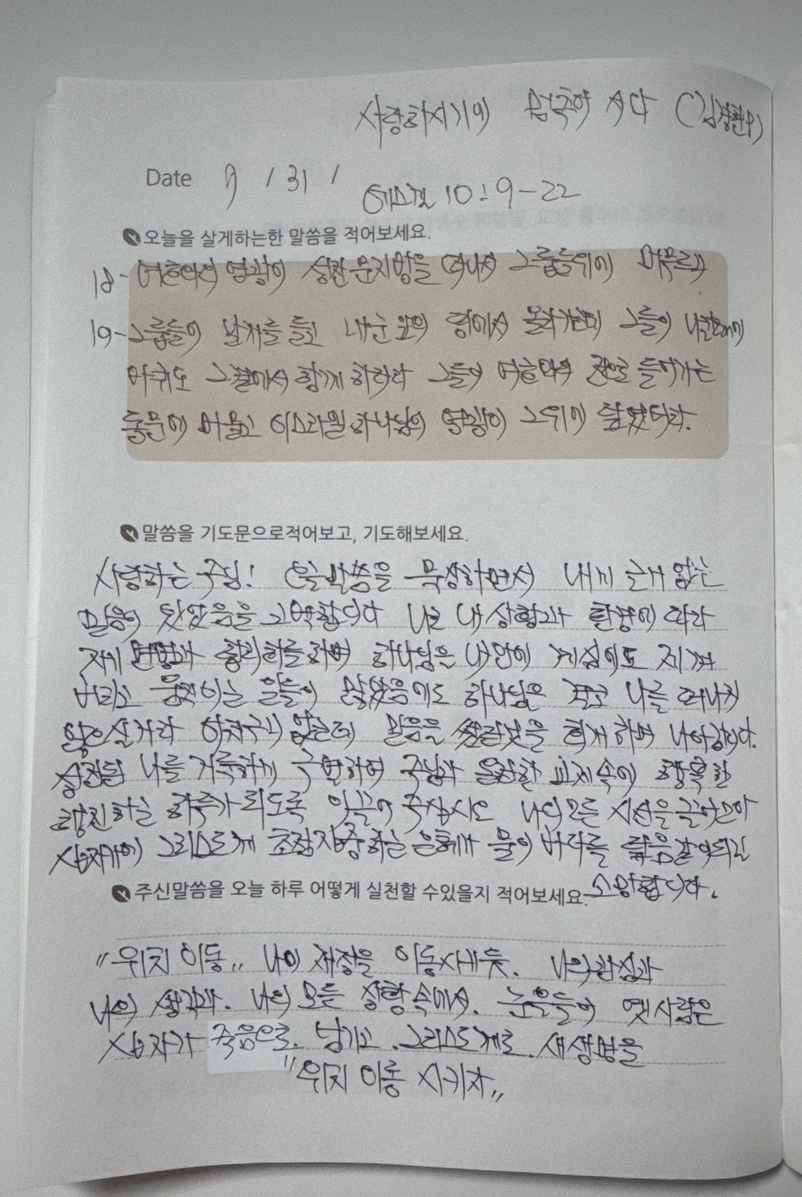 사랑하시기에 멈추어 서다 (김경환)
Date 9 / 31 /
에스겔 10:9-22
오늘을 살게하는한 말씀을 적어보세요.
18- 여호와의 영광이 성전 문지방을 떠나서 그룹들위에 머무르고
19- 그룹들이 날개를 들고 내눈 앞의 땅에서 올라가는데 그들이 나갈때에
바퀴도 그곁에서 함께 하더라 그들이 여호와의 전으로 들어가는
동문에 머물고 이스라엘 하나님의 영광이 그위에 덮였더라.
말씀을 기도문으로적어보고, 기도해보세요.
사랑하는 주님! 오늘말씀을 묵상하면서 내게 근거 없는
믿음이 있었음을 고백합니다 나는 내 상황과 환경에 따라
자기 변명과 합리화를하며 하나님은 내안에 계심에도 제껴
버리고 움직이는 일들이 많았음에도 하나님은 결코 나를 떠나지
않으실거라 믿음을 하며 나아갑니다.
성전된 나를 거룩하게 구별하여 주님과 온전한 교제속에 행복한
행진하는 하루가 되도록 이끌어 주십시오 나의모든 시선을 끌어모아
십자가에 그리스도께 초점집중하는 은혜가 물이 바다를 덮음같이되길
소망합니다.
주신말씀을 오늘 하루 어떻게 실천할 수있을지 적어보세요.
"위치 이동" 나의 재정을 이동시키듯. 나의관심과
나의 생각과. 나의 모든 상황 속에서. 눈을들어 옛사람은
십자가 죽음으로. 넘기고. 그리스도께로. 새생명을
"위치 이동 시키자"